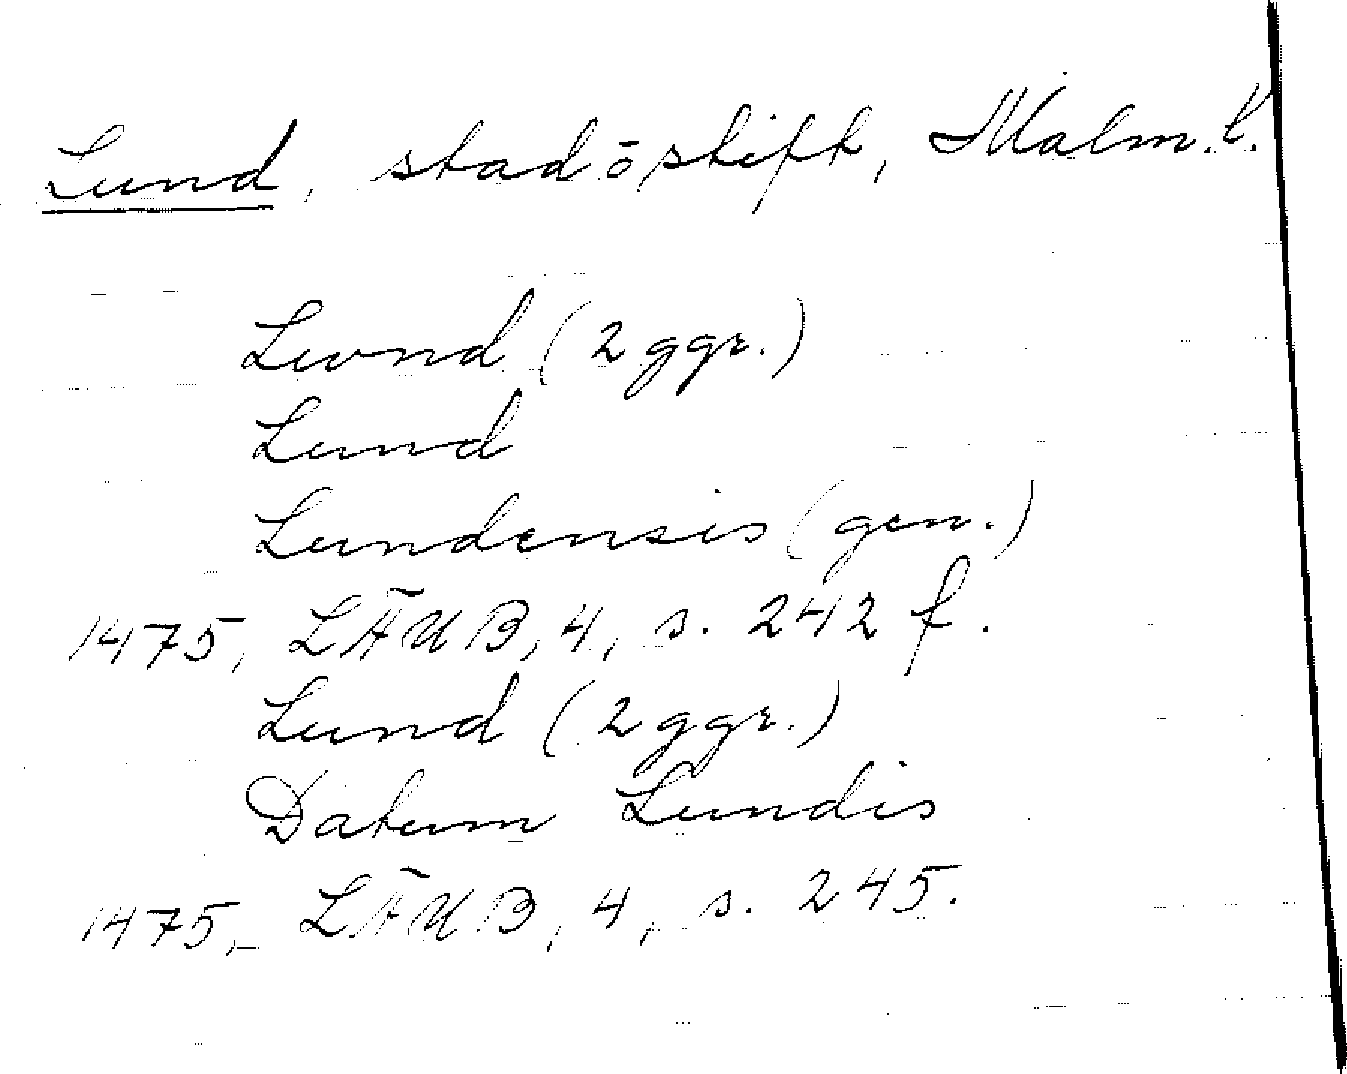 Lund, stad o stift, Malm. l.
Lwnd (2 ggr.)
Lund
Lundensis (gen.)
1475, LÄUB, 4, s. 242 f.
Lund (2 ggr.)
Datum Lundis
1475, LÄUB, 4, s. 245.